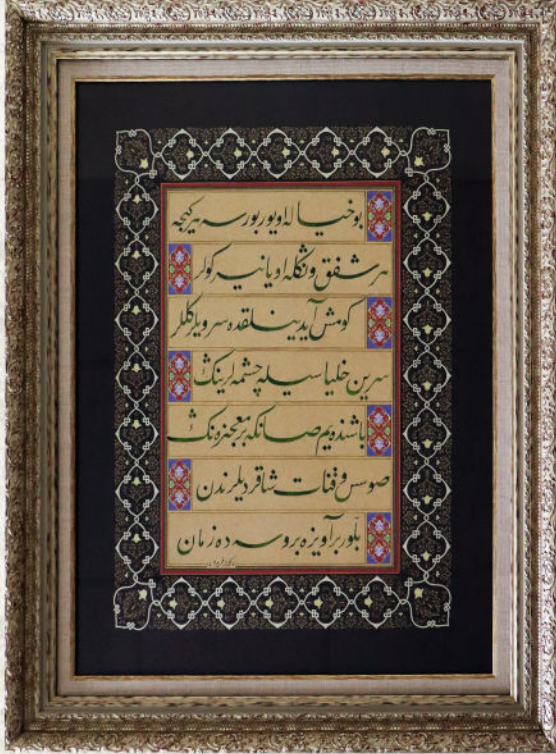 بو خیالله اویور بورسه هر کیجه
هر شفق رنگله اویانیر کولر
کومش آیدینلقده سرویلر کللر
سرین خلیا سیله چشمه لرینڭ
باشنده یم صانکه بر معجزه نڭ
صو سسی و قنات شاقردیلرندن
بلور بر آویزه بروسه ده زمان